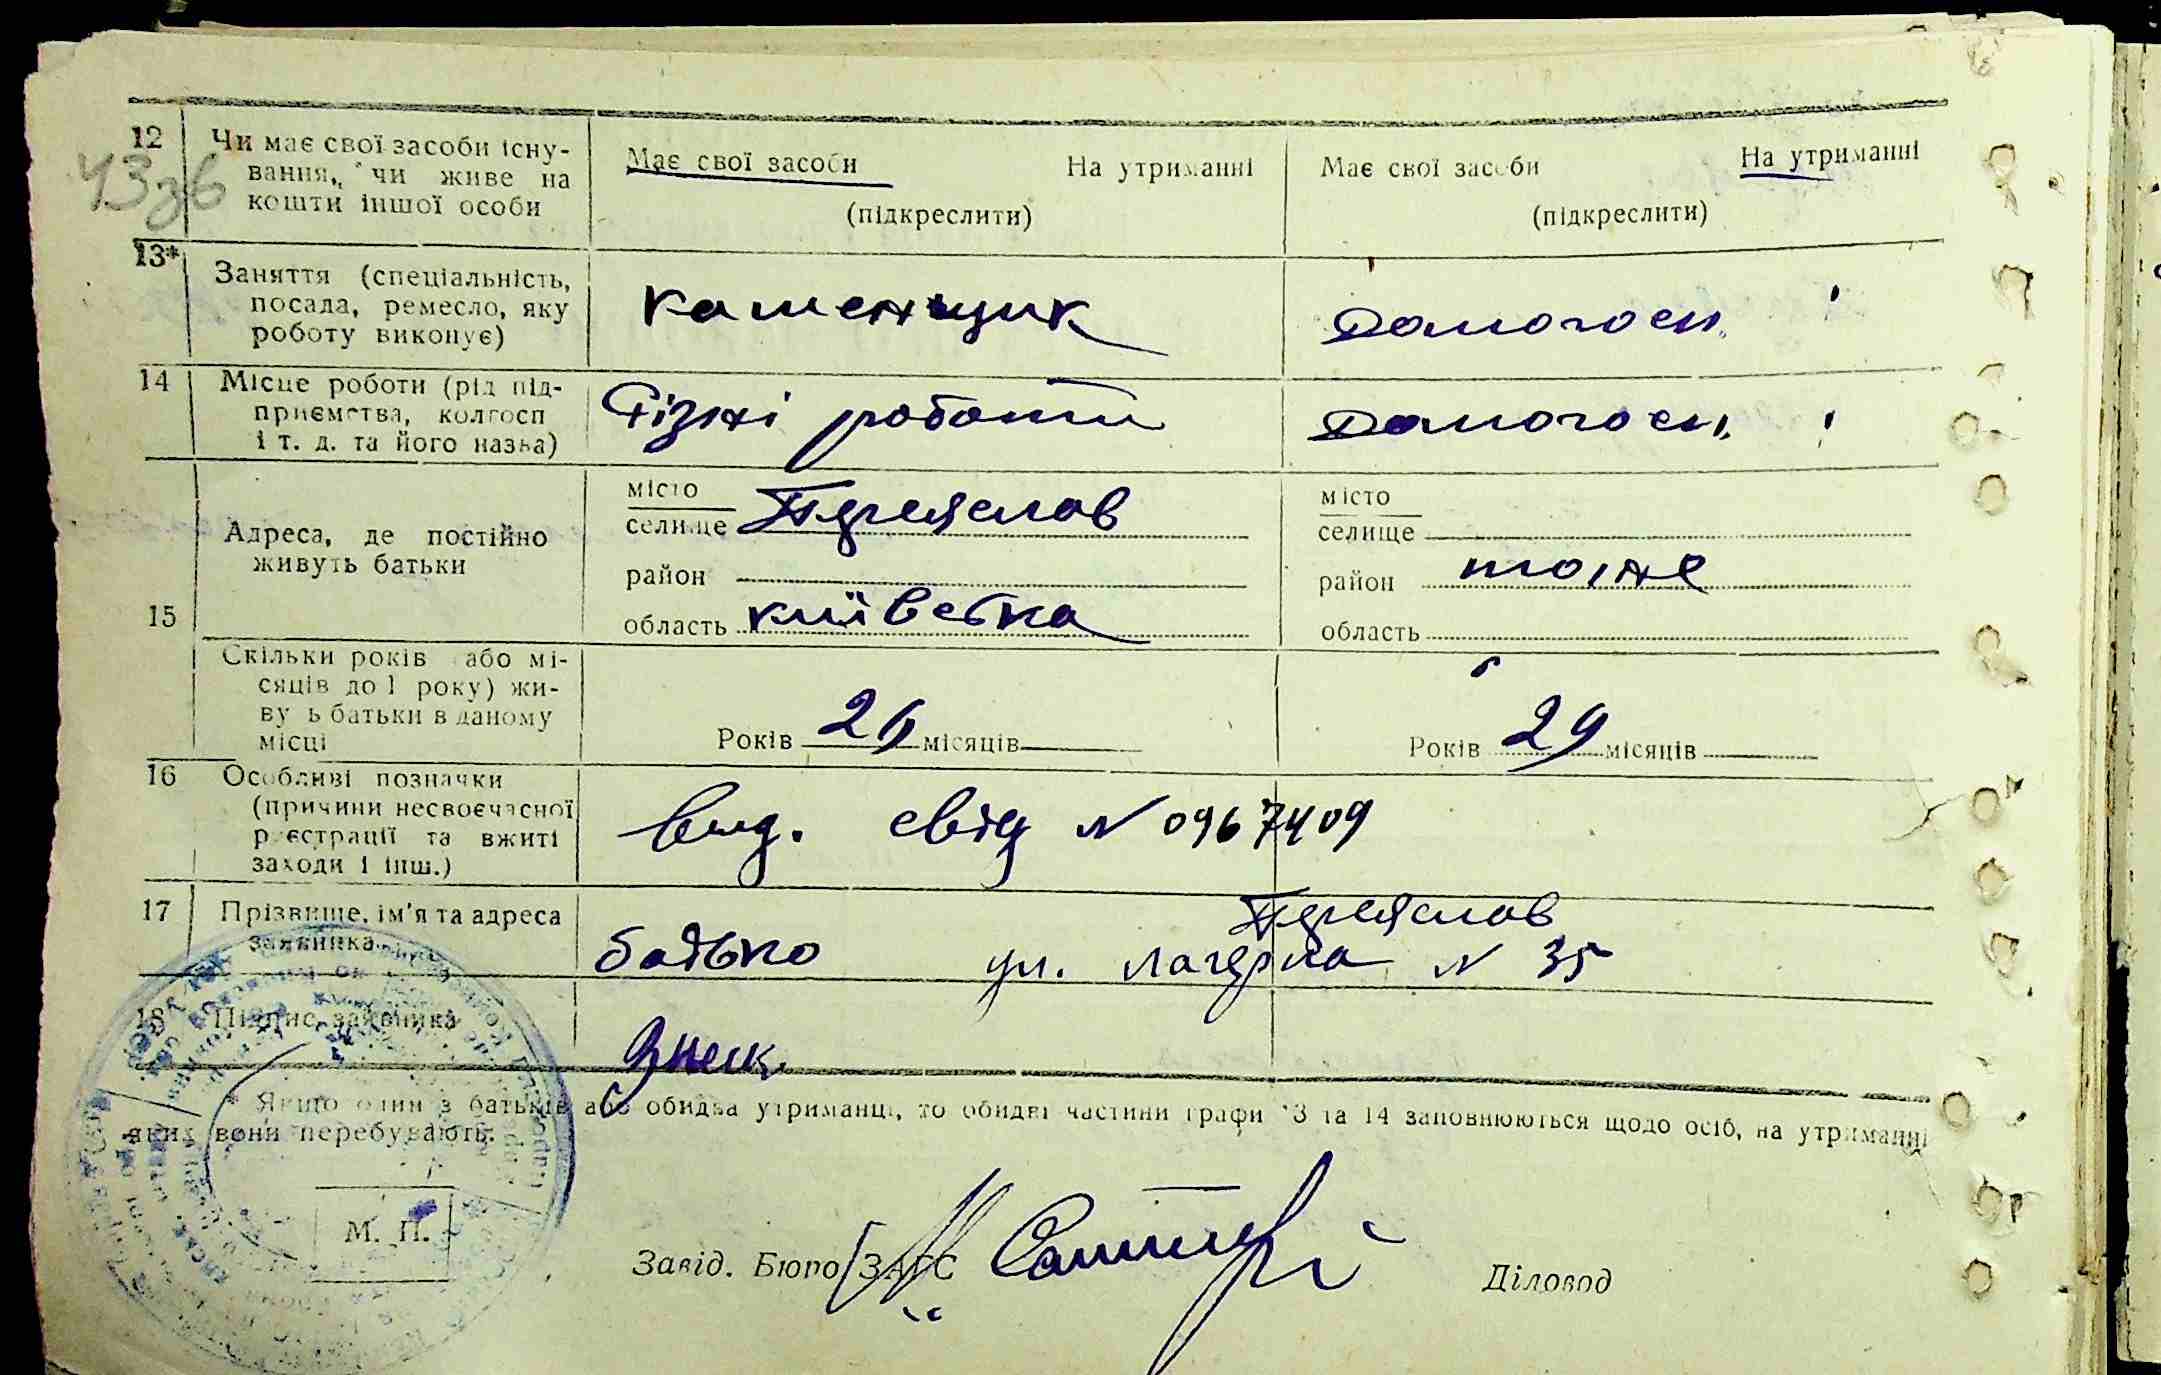 43зв
12 Чи має свої засоби існу-
вання, чи живе на
кошти іншої особи
Має свої засоби На утриманні
(підкреслити)
Має свої засоби На утриманні
(підкреслити)
13* Заняття (спеціальність,
посада, ремесло, яку
роботу виконує)
каменщик
Домогосп.
14 Місце роботи (рід під-
приємства, колгосп
і т. д. та його назва)
Різні роботи
Домогосп.
15 Адреса, де постійно
живуть батьки
місто
селище Переяслав
район
область київська
місто
селище
район тоіже
область
Скільки років або мі-
сяців до 1 року) жи-
ву ь батьки в даному
місці
Років 26 місяців
Років 29 місяців
16 Особливі позначки
(причини несвоєчасної
реєстрації та вжиті
заходи і інш.)
вид. свід N 0967409
17 Прізвище, ім'я та адреса
заявника
Переяслав
батько ул. лагерна N 35
18 Підпис заявника
* Якщо один з батьків або обидва утриманці, то обидві частини графи 13 та 14 заповнюються щодо осіб, на утриманні
яких вони перебувають.
М. П.
Завід. Бюро ЗАГС
Діловод